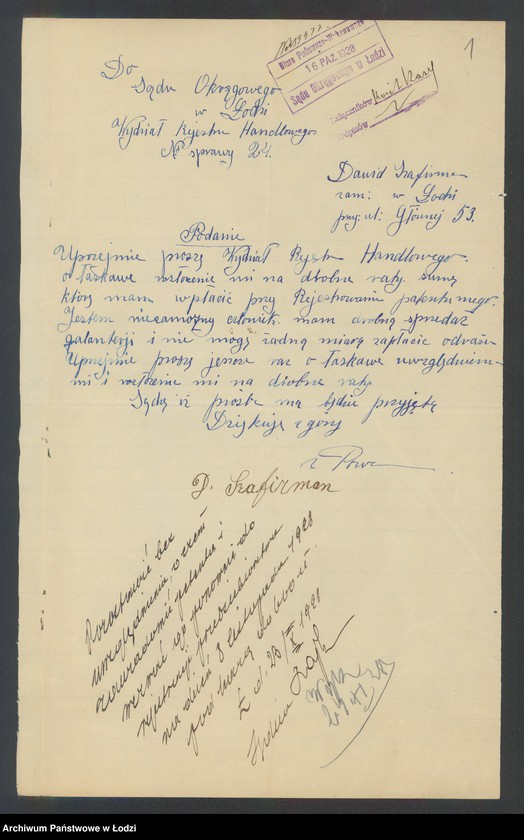 1
Biuro Podawczo-
16 PAŹ. 1928
Sądu Okręgowego w Łodzi
Załączników
Do
Sądu Okręgowego
w Łodzi
Wydział Rejestru Handlowego
No sprawy 24.
Dawid Szafirman
zam: w Łodzi
przy ul: Głównej 53.
Podanie
Uprzejmie proszę Wydział Rejstr Handlowego
o łaskawe rozłożenie mi na drobne raty. sumę
którą mam wpłacić przy Rejestrowaniu patentu mego.
Jestem niezamożny człowiek. mam drobną sprzedaż
galanterji i nie mogę żadną miarą zapłacić odrazu
Uprzejmie proszę jeszcze raz o łaskawe uwzględnienie
mi i rozłożenie mi na drobne raty
Sądzę iż prośba ma będzie przyjętą
Dziękuję z góry
z Pow
D. Szafirman
Pozostawić bez
uwzględnienia, o czem
zawiadomić petenta i
wezwać go ponownie do
rejestracji przedsiębiorstwa
na dzień 8 listopada 1928
pod karą do 600 zł.
Ł. d. 26/X 1928
Sędzia
Archiwum Państwowe w Łodzi